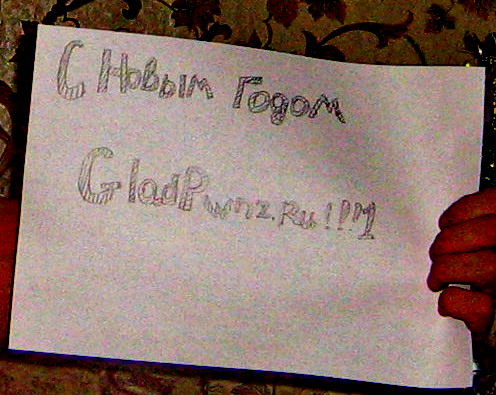 С Новым Годом
GladPwnz.Ru!!!1